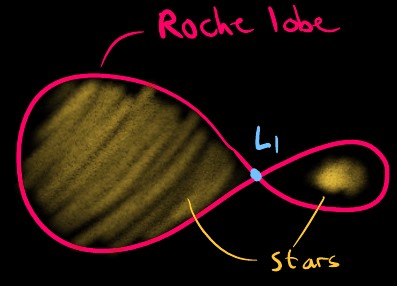 Roche lobe
L1
stars